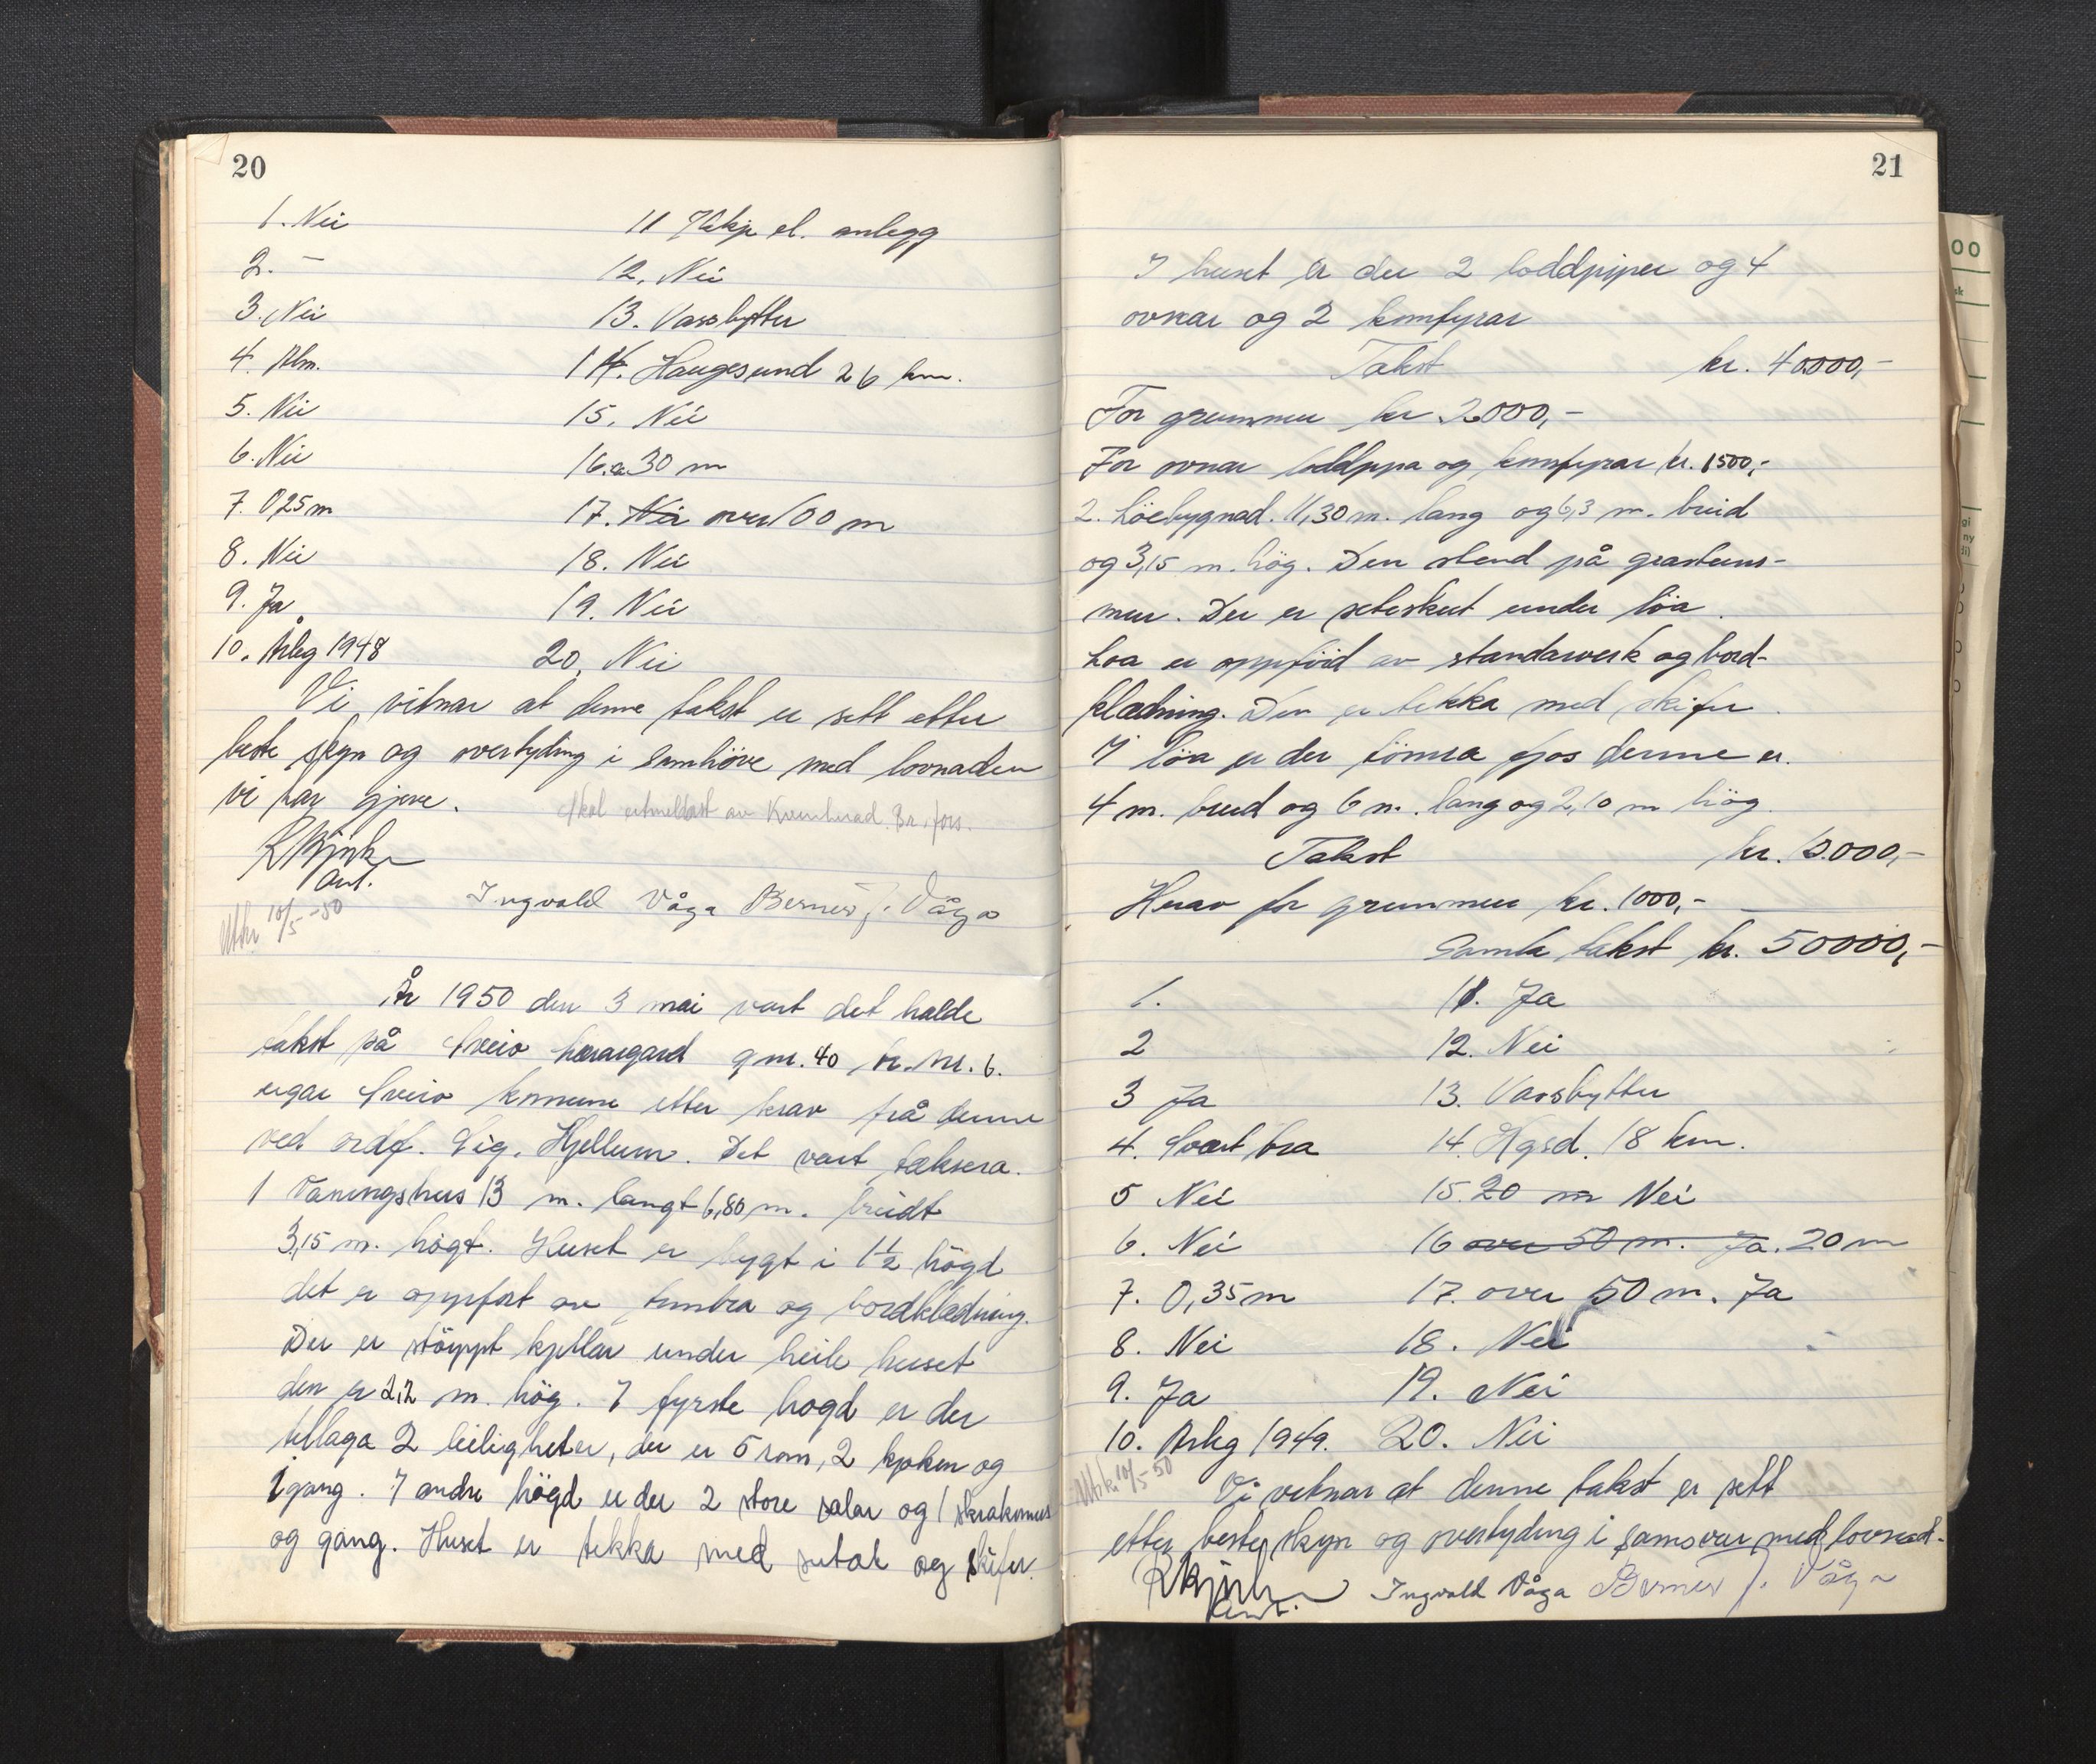 20
1. Nei
2. –
3. Nei
4. Alm.
5. Nei
6. Nei
7. 0,25 m
8. Nei
9. Ja
10. Årleg 1948
11 el. anlegg
12. Nei
13. Vassbytter
14. Haugesund 26 km.
15. Nei
16. a 30 m
17. Nei over 100 m
18. Nei
19. Nei
20. Nei
Vi vitnar at denne takst er sett etter
beste skyn og overtyding i samhöve med lovnaden
vi har gjeve.
Skal utmeldast av Kvinherad Br. fors.
ant.
Utskr 10/5-50
Ingvald Våga Berner J. Våga
År 1950 den 3 mai vart det halde
takst på Sveio heradgard gnr. 40 br. nr. 6.
eigar Sveio komune etter krav frå denne
ved ordf. Sig. Hjellum. Det vart taksera.
1 Våningshus 13 m. langt 6,80 m. breidt
3,15 m. högt. Huset er bygt i 1 1/2 högd
det er oppfört av timbra og bordkledning.
Der er stöyppt kjellar under heile huset
den er 2,2 m. hög. I fyrste hogd er der
tillaga 2 leiligheter, der er 5 rom, 2 kjøken og
1 gang. I andre högd er der 2 store salar og 1 skrakomers
og gang. Huset er tekka med sutak og skifer.
21
I huset er der 2 loddpiper og 4
ovnar og 2 komfyrar
Takst kr. 40000,-
For grunnmur kr 2000,-
For ovnar loddpipa og komfyrar kr. 1500,-
2. Löebygnad. 11,30 m. lang og 6,3 m. breid
og 3,15 m. hög. Den stend på grasteins-
mur. Der er seteskut under löa.
Loa er oppförd av standarverk og bord-
klædning. Den er tekka med skifer.
I löa er der tömra fjos denne er.
4 m. breid og 6 m. lang og 2,10 m hög.
Takst kr. 10.000,-
Herav for grunnmur kr. 1000,-
Samla takst kr. 50000,-
1.
2
3 Ja
4. Svært bra
5 Nei
6. Nei
7. 0,35 m
8. Nei
9. Ja
10. Arleg 1949.
11. Ja
12. Nei
13. Vassbytter
14. Hgsd. 18 km.
15. 20 m Nei
16 over 50 m. Ja. 20 m
17. over 50 m. Ja
18. Nei
19. Nei
20. Nei
Utskr. 10/5-50
Vi vitnar at denne takst er sett
etter beste skyn og overtyding i samsvar med lovnad.
ant.
Ingvald Våga Berner J. Våga